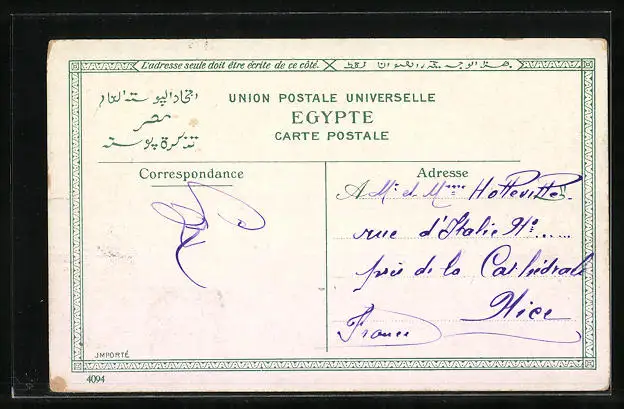 L'adresse seule doit être écrite de ce côté.
اتحاد البوسته العام
مصر
تذكرة بوسته
UNION POSTALE UNIVERSELLE
EGYPTE
CARTE POSTALE
Correspondance
Adresse
A Mr et Mme
rue d'Italie No......
près de la Cathédrale
Nice
France
IMPORTÉ
4094